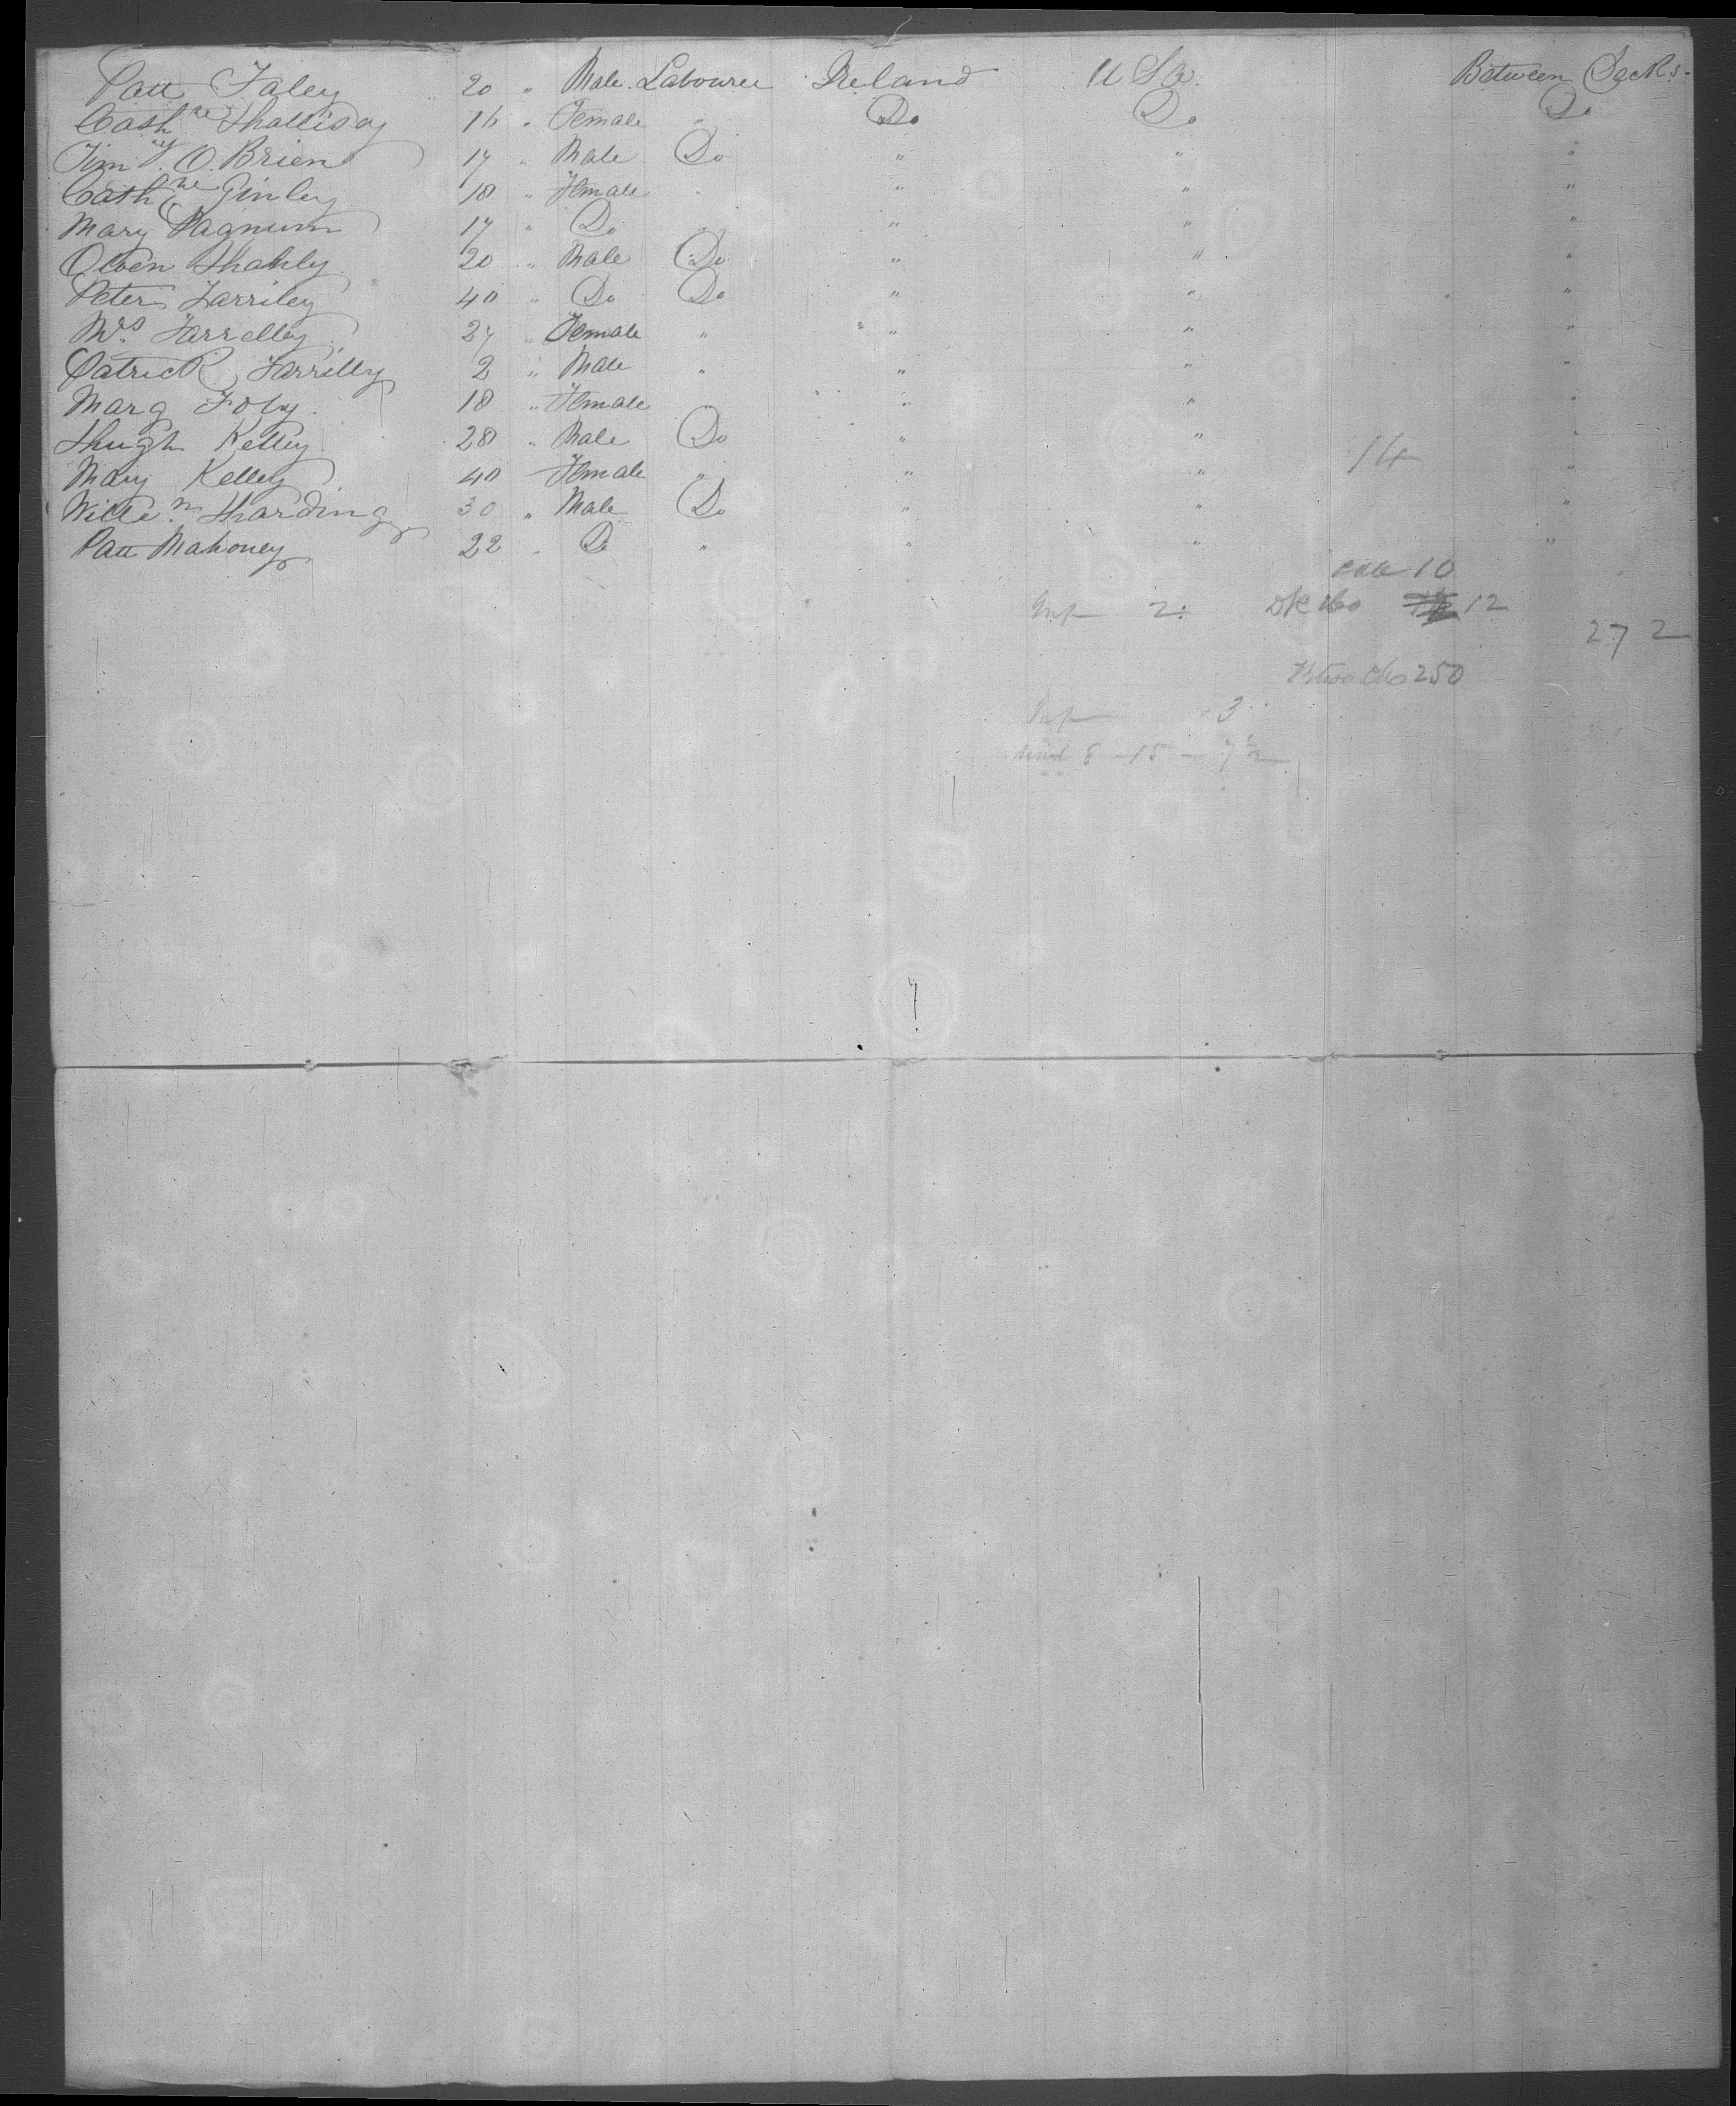 Patt Faley 20 " Male Labourer Ireland U Sa. Between Decks
Cath ne Halliday 16 " Female " Do Do Do
Tim y. O. Brien 17 " Male Do " " "
Cath ne Ginley 18 " Female " " " "
Mary Magnum 17 " Do " " " "
Owen Hanly 20 " Male Do " " "
Peter Farriley 40 " Do Do " " "
Mrs Farrelley 27 " Female " " " "
Patrick Farrilly 2 " Male " " " "
Marg Foly 18 " Female " " "
Hugh Kelley 28 " Male Do " " "
Mary Kelley 40 Female " " " 14 "
Will m Harding 30 " Male Do " " "
Patt Mahoney 22 " Do " " " "
10
Inf 2 Dk 12
272
250
Inf 3
8 - 15 -